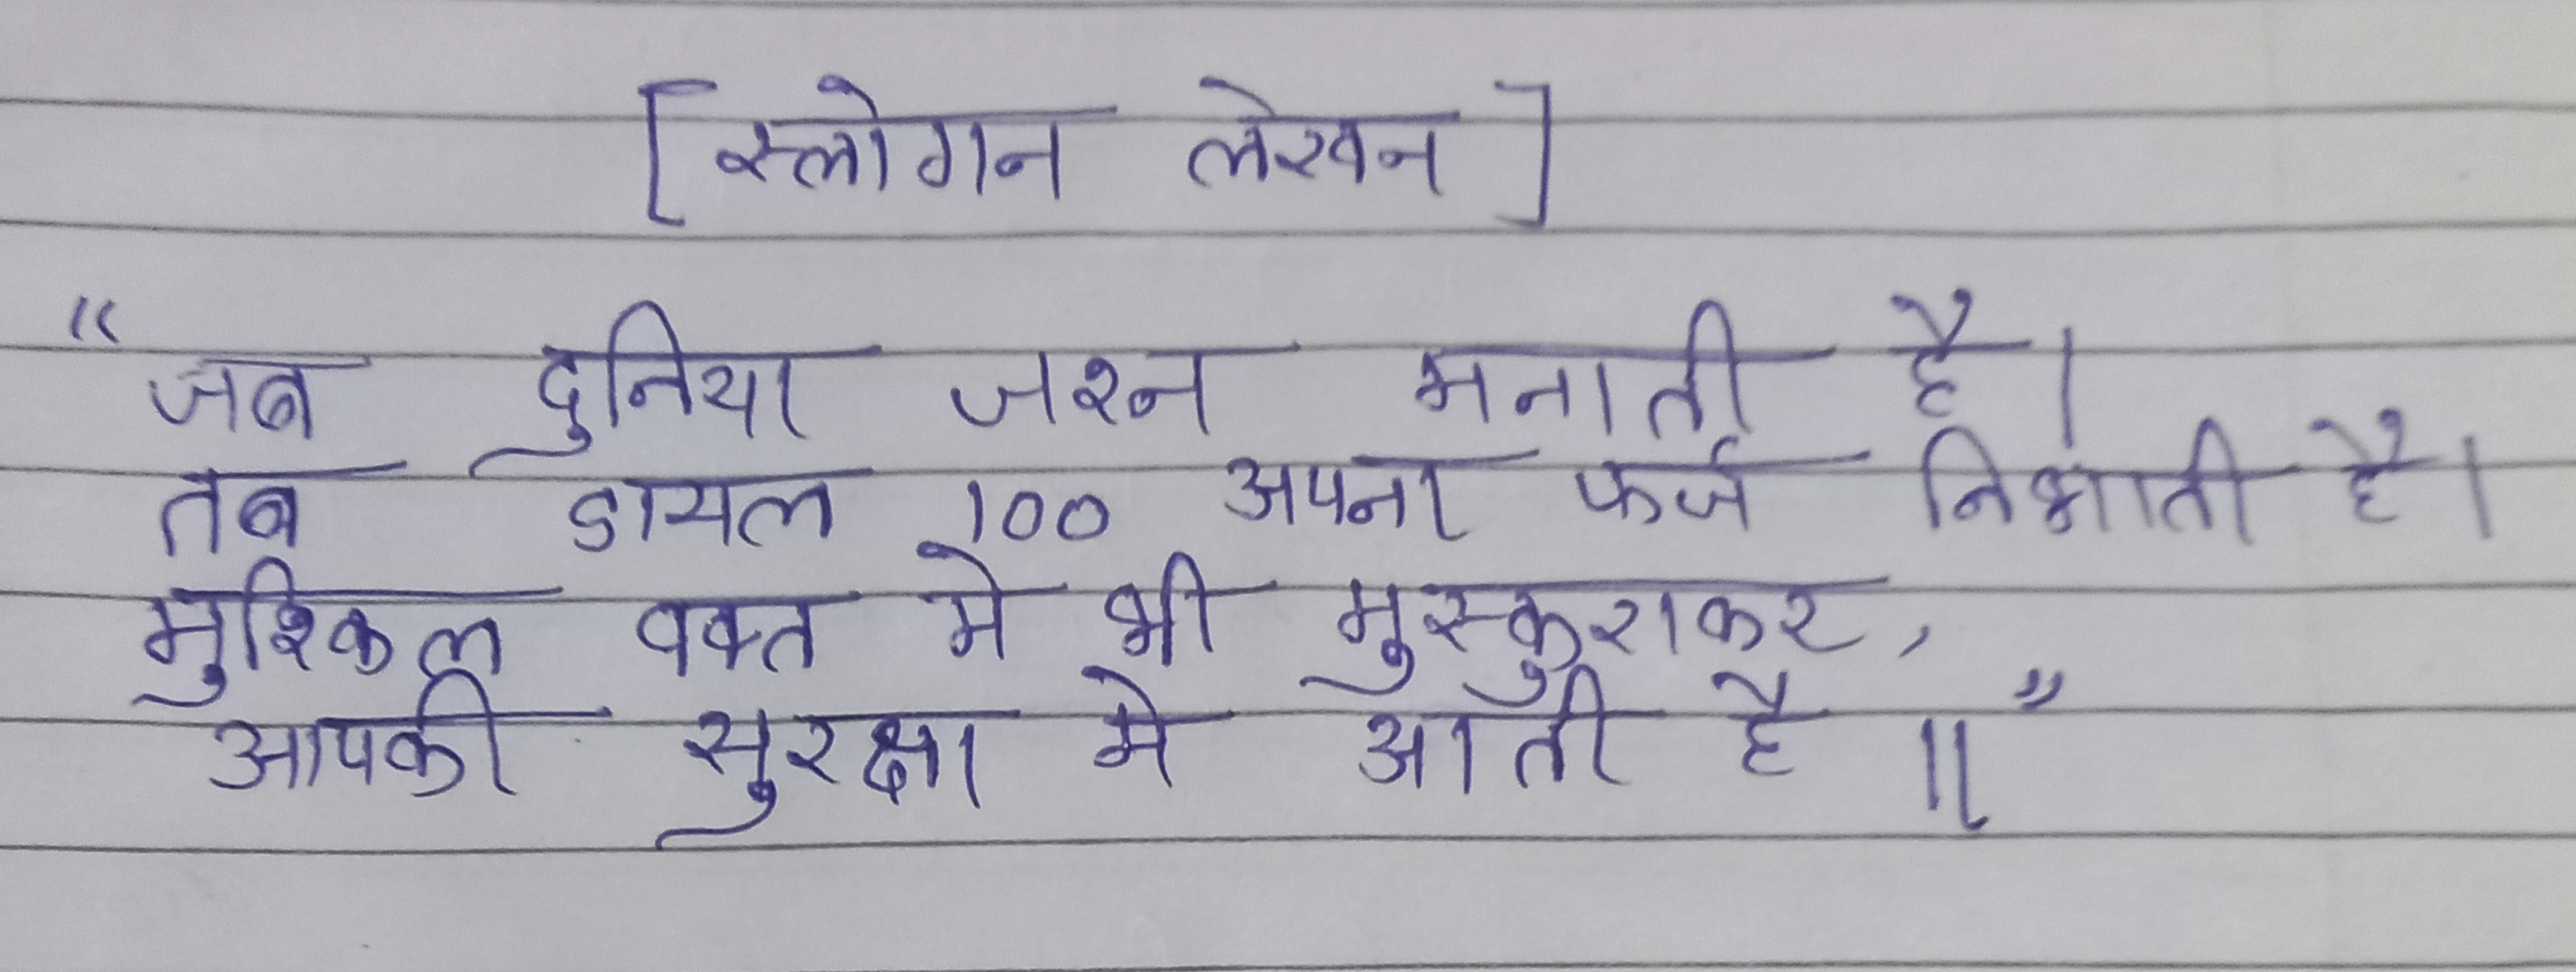 [स्लोगन लेखन]
"जब दुनिया जश्न मनाती है।
तब डायल 100 अपना फर्ज निभाती है।
मुश्किल वक्त मे भी मुस्कुराकर,
आपकी सुरक्षा मे आती है॥"